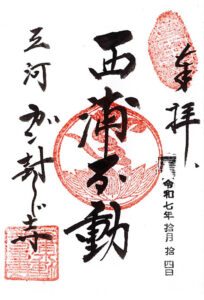 奉拝
令和七年拾月拾四日
西浦不動
三河
ガン封じ寺